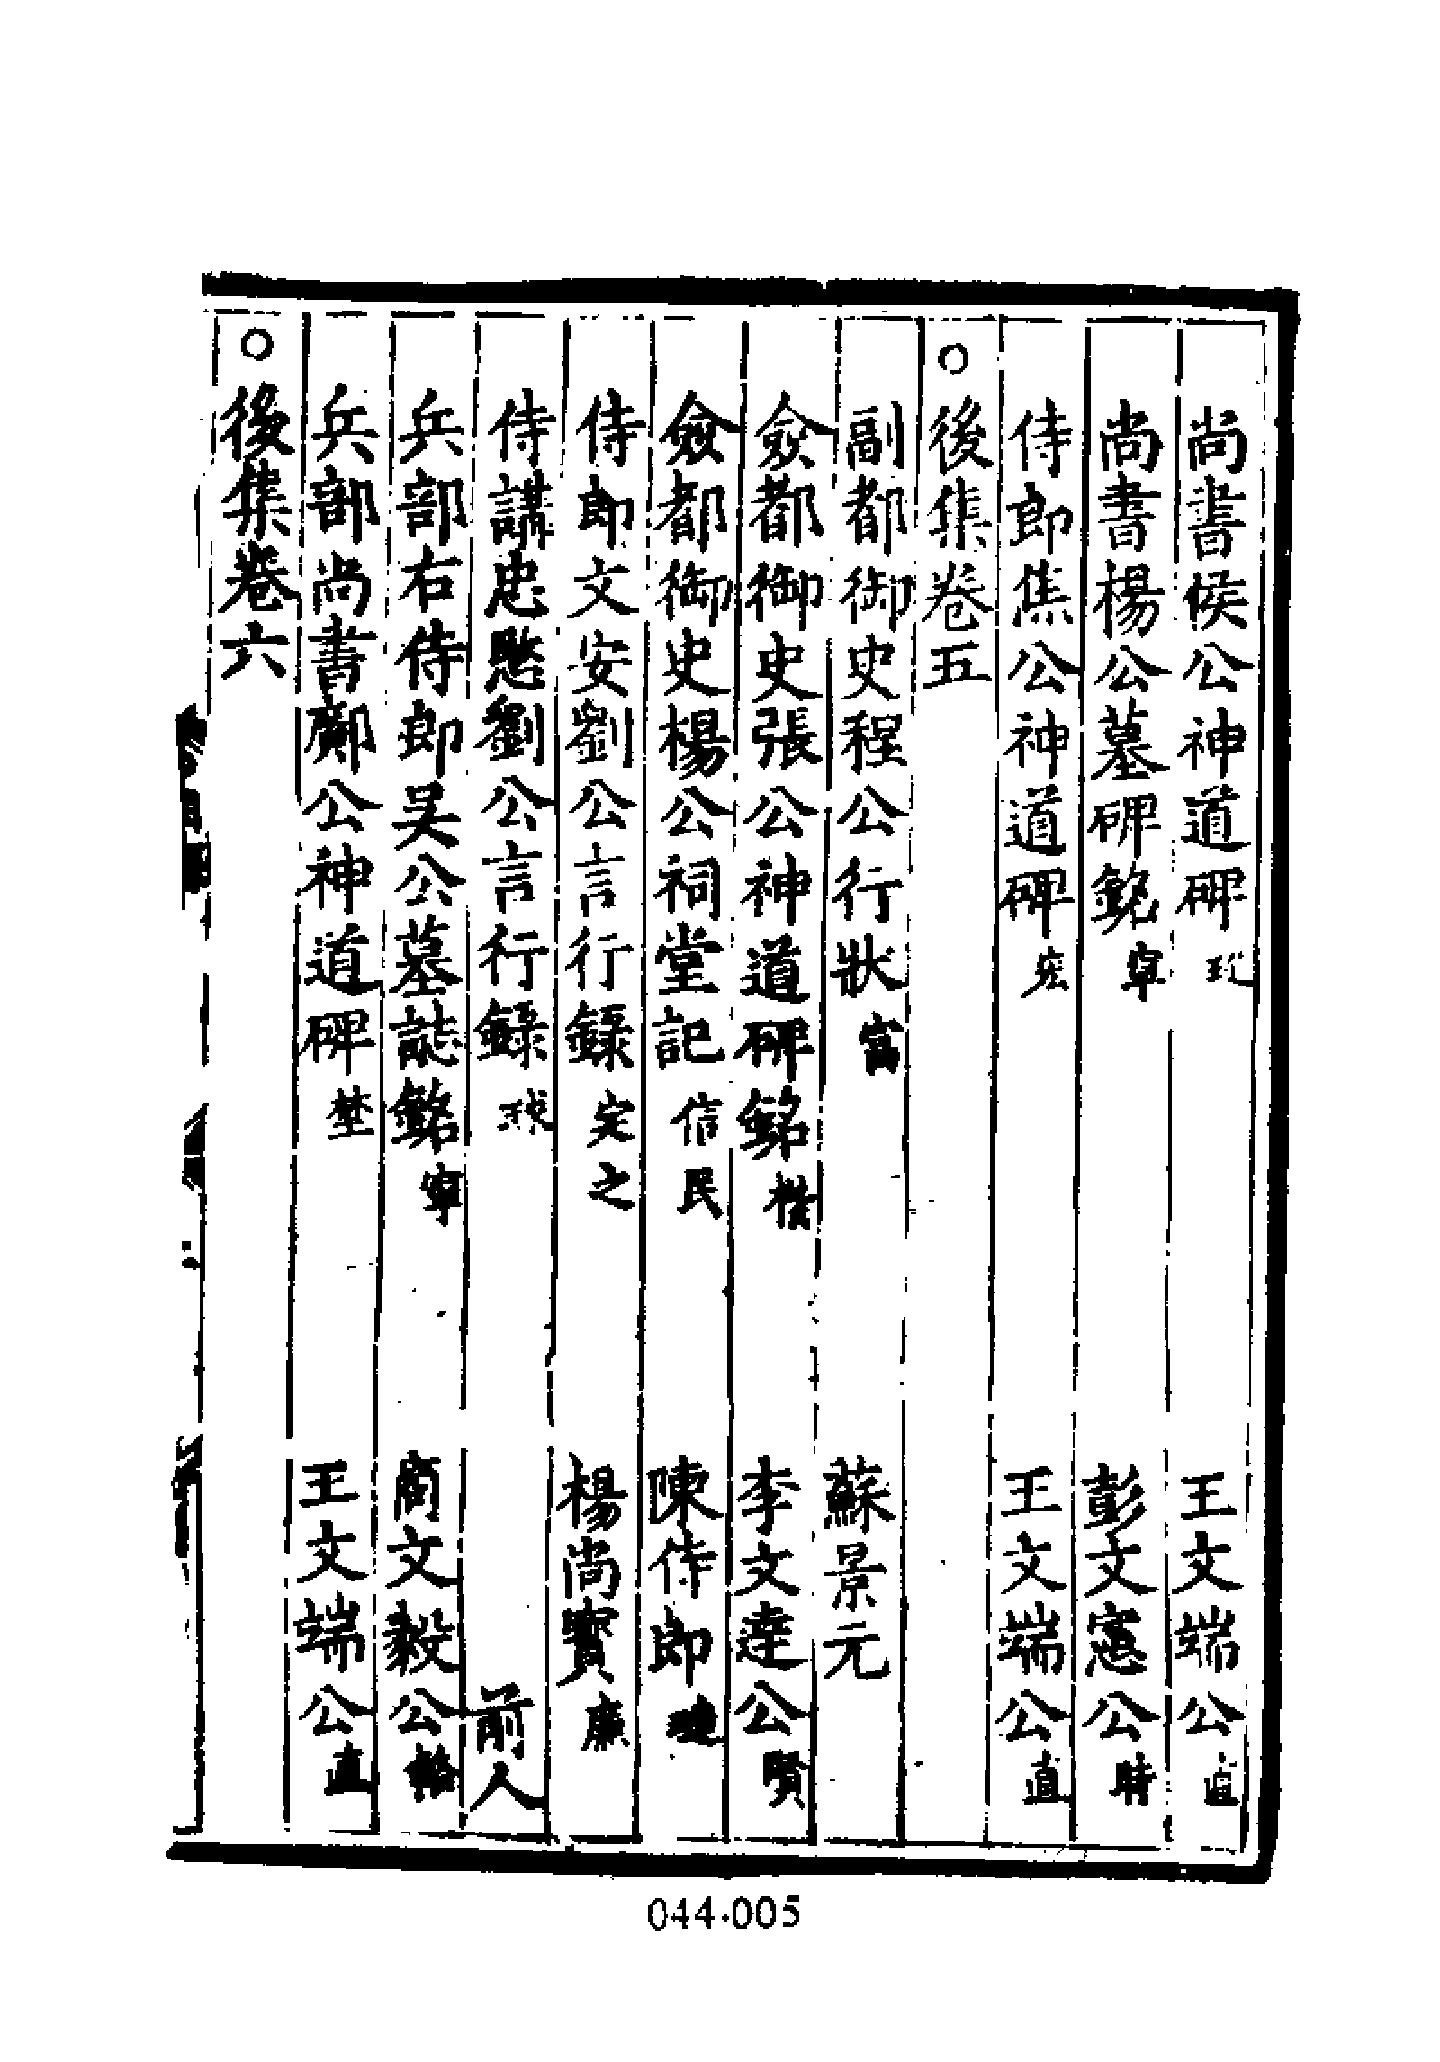 尚書侯公神道碑璡 王文端公直
尚書楊公墓碑銘寧 彭文憲公時
侍郎焦公神道碑宏 王文端公直
○後集卷五
副都御史程公行狀富 蘇景元
僉都御史張公神道碑銘楷 李文達公賢
僉都御史楊公祠堂記信民 陳侍郎璉
侍郎文安劉公言行錄定之 楊尚寶廉
侍講忠愍劉公言行錄球 前人
兵部右侍郎吳公墓誌銘寧 商文毅公輅
兵部尚書鄺公神道碑埜 王文端公直
○後集卷六
044-005